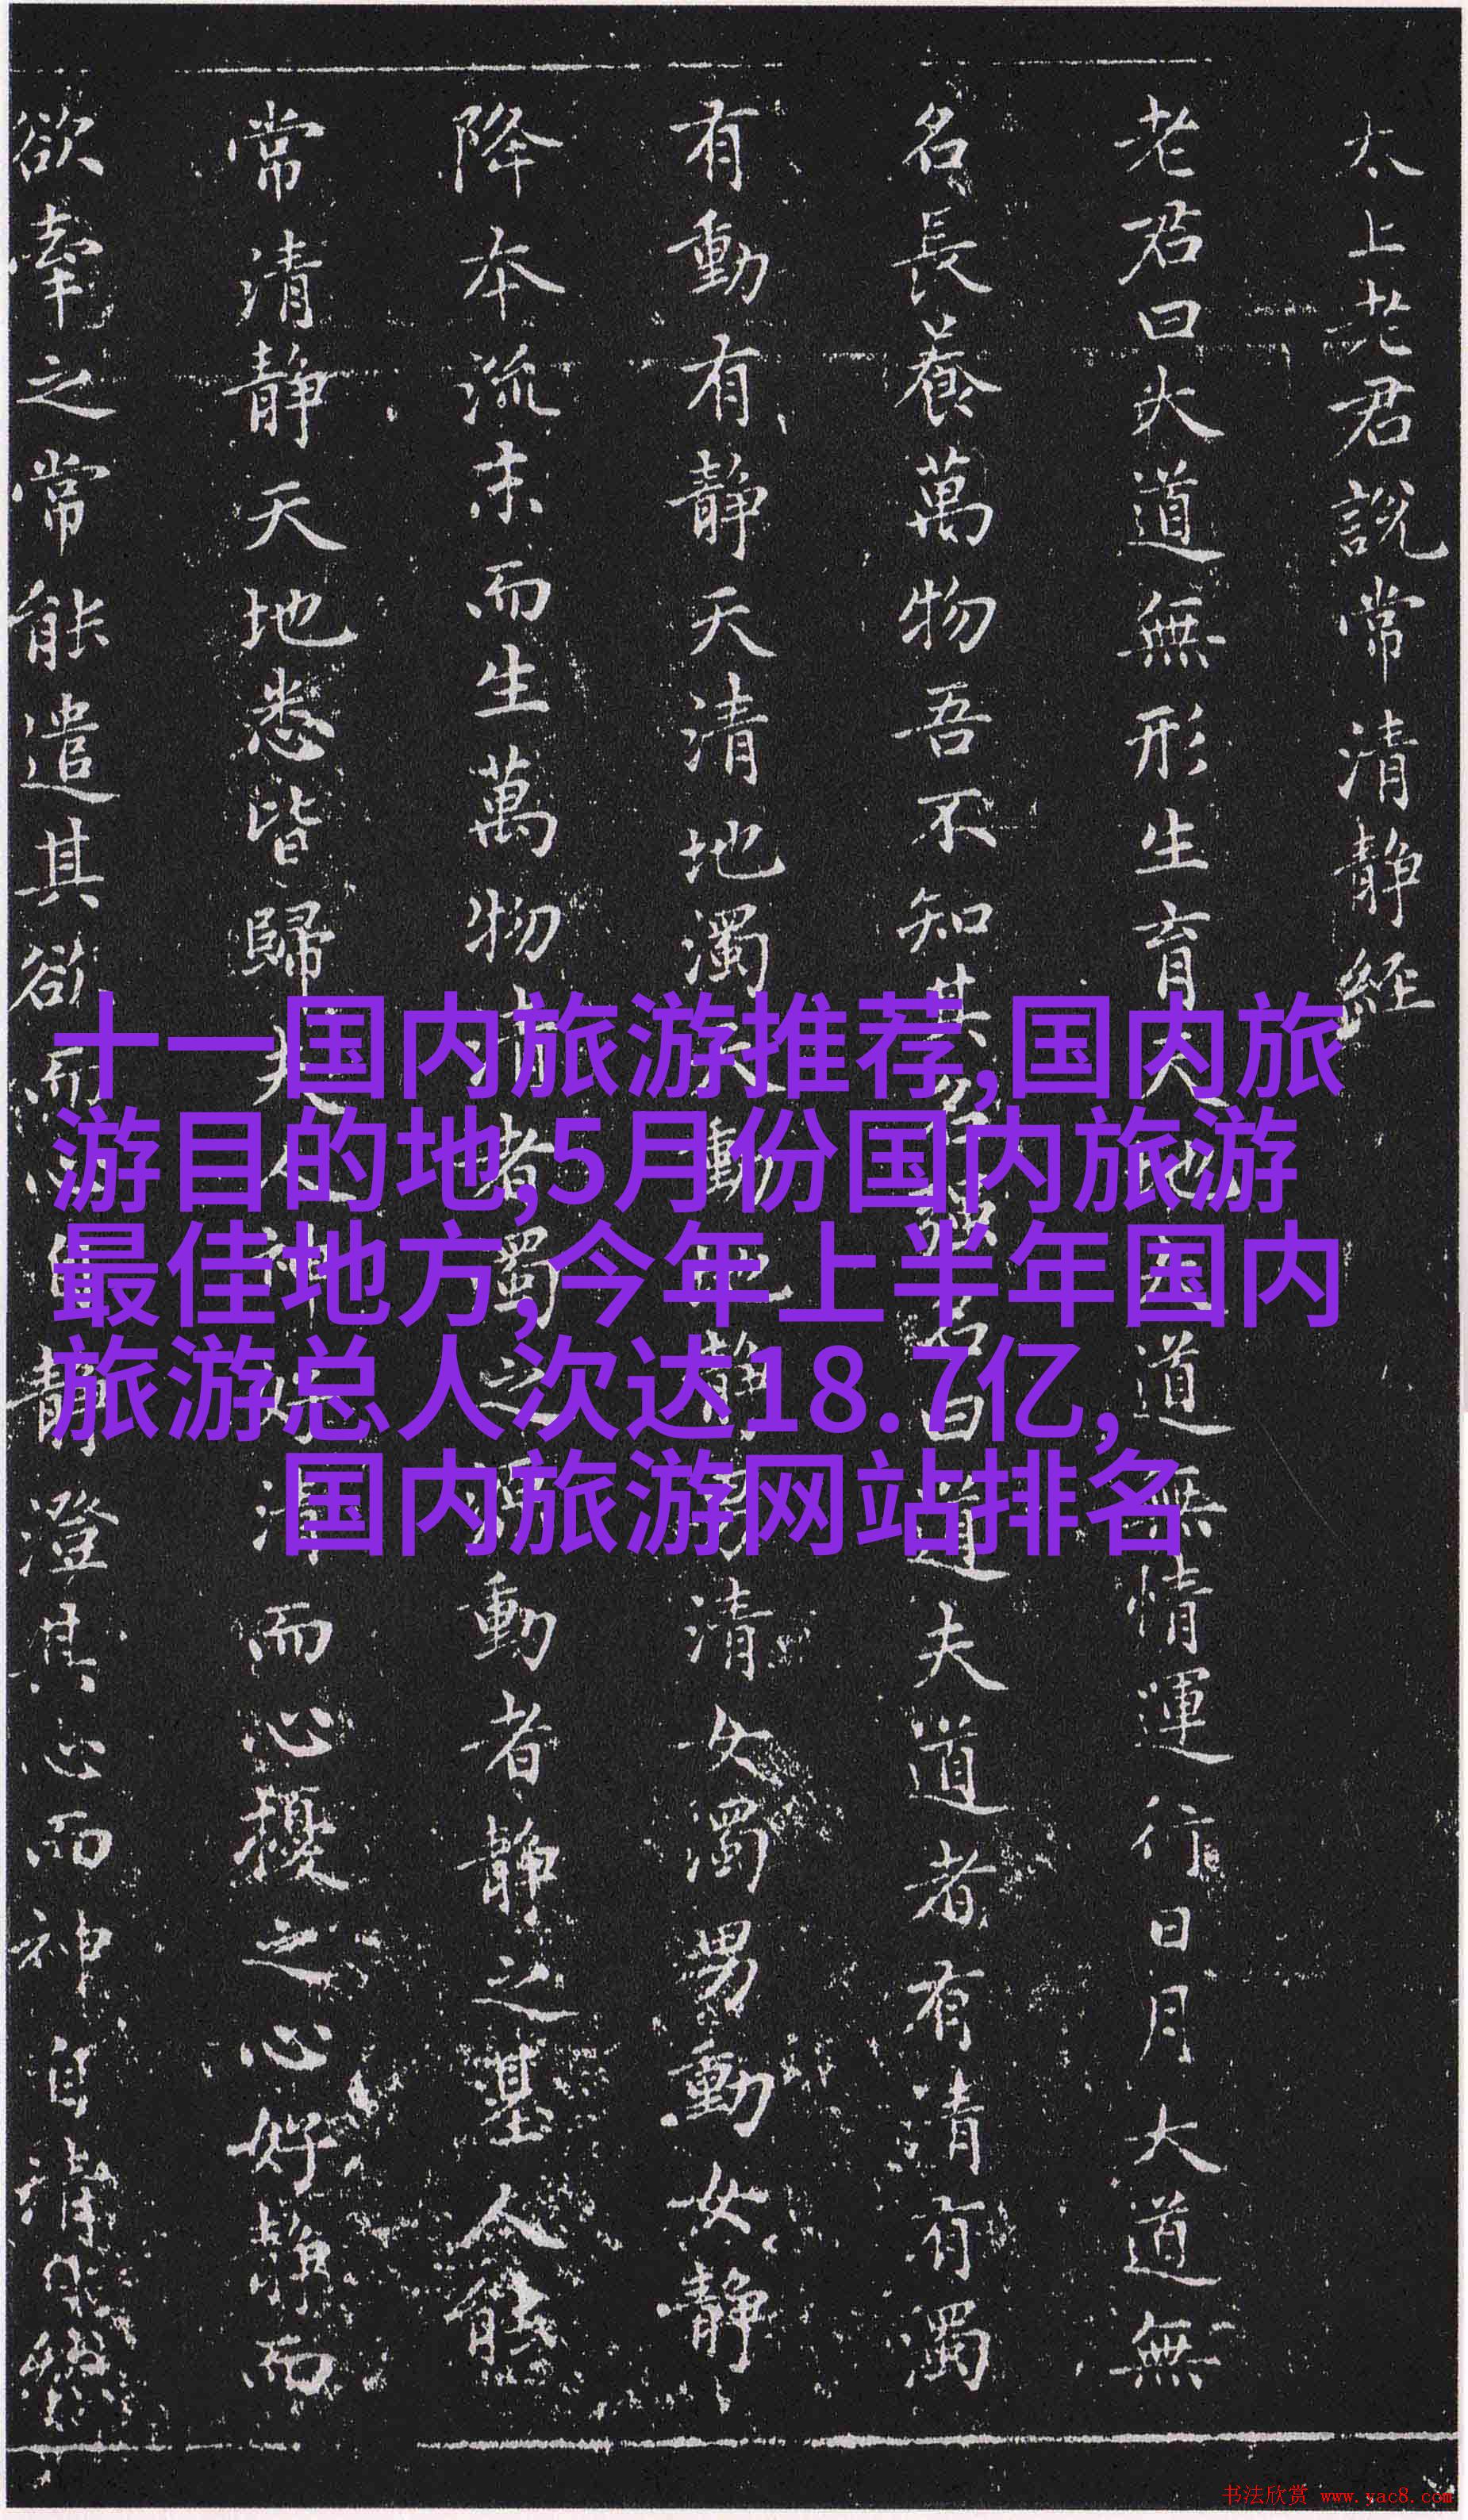 太上老君說常清静經
老君曰大道無形生育天地大道無情運行日月大道無
名長養萬物吾不知其名強名曰道夫道者有清有濁
有動有静天清地濁天動地静男清女濁男動女静
降本流末而生萬物清者濁之源動者静之基人能
常清静天地悉皆歸夫人神好清而心擾之心好静而
欲牽之常能遣其欲而心自静澄其心而神自清
十一国内旅游推荐,国内旅
游目的地,5月份国内旅游
最佳地方,今年上半年国内
旅游总人次达18.7亿,
国内旅游网站排名
书法欣赏 www.yac8.com